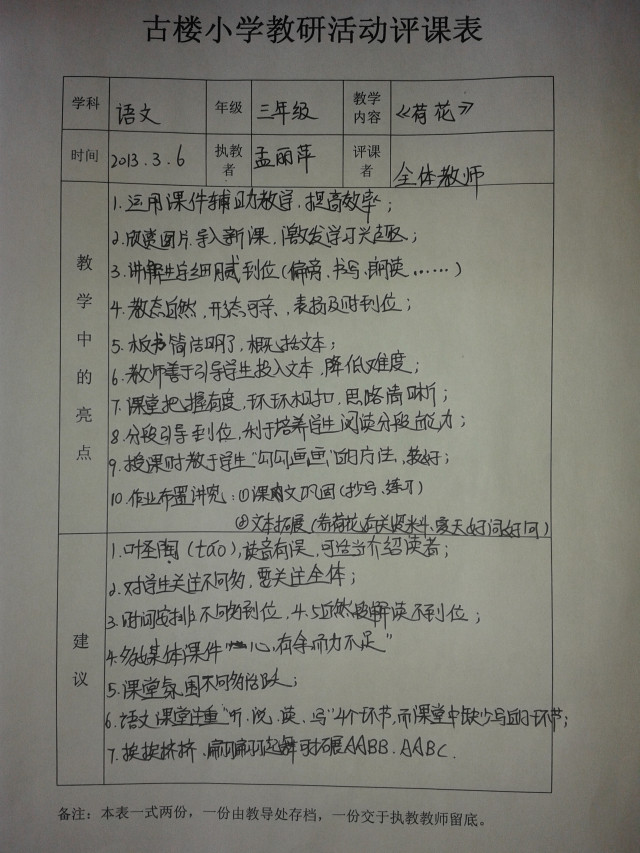 古楼小学教研活动评课表
学科 语文 年级 三年级 教学内容 《荷花》
时间 2013.3.6 执教者 孟丽萍 评课者 全体教师
教学中的亮点
1.运用课件辅助教学,提高效率;
2.欣赏图片,导入新课,激发学习兴趣;
3.讲解生字细腻到位(偏旁、书写、朗读……)
4.教态自然,形态可亲,表扬及时到位;
5.板书简洁明了,概括文本;
6.教师善于引导学生投入文本,降低难度;
7.课堂把握有度,环环相扣,思路清晰;
8.分段引导到位,利于培养学生阅读分段能力;
9.授课时教于学生"勾勾画画"的方法,较好;
10.作业布置讲究:①课内文巩固(抄写、练习)
②文本拓展(看荷花,有关资料、夏天好问好问)
建议
1.叶圣陶(táo),读音有误,可适当介绍读者;
2.对学生关注不够多,要关注全体;
3.时间安排不够到位,4.5自然段解读不到位;
4.多媒体课件"心有余而力不足"
5.课堂氛围不够活跃;
6.语文课堂注重"听、说、读、写"4个环节,而课堂中缺少写的环节;
7.挨挨挤挤、翩翩起舞可拓展AABB、AABC.
备注:本表一式两份,一份由教导处存档,一份交于执教教师留底。